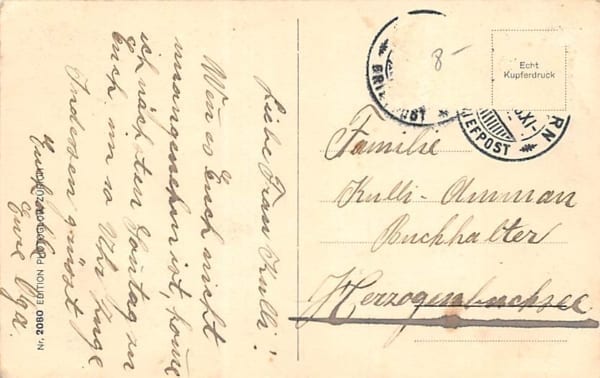 Liebe Frau Kulli!
Wen es Euch nicht
unangenehm ist, komme
ich nächsten Sonntag zu
Euch im 10 Uhr Zuge
Indessen grüsst
Euch alle
Eure Olga.
Nr. 2080 EDITION PHOTOGLOB ZÜRICH
8-
BRIEFPOST
RN
XI
BRIEFPOST
Echt
Kupferdruck
Familie
Kulli-Ammann
Buchhalter
Herzogenbuchsee